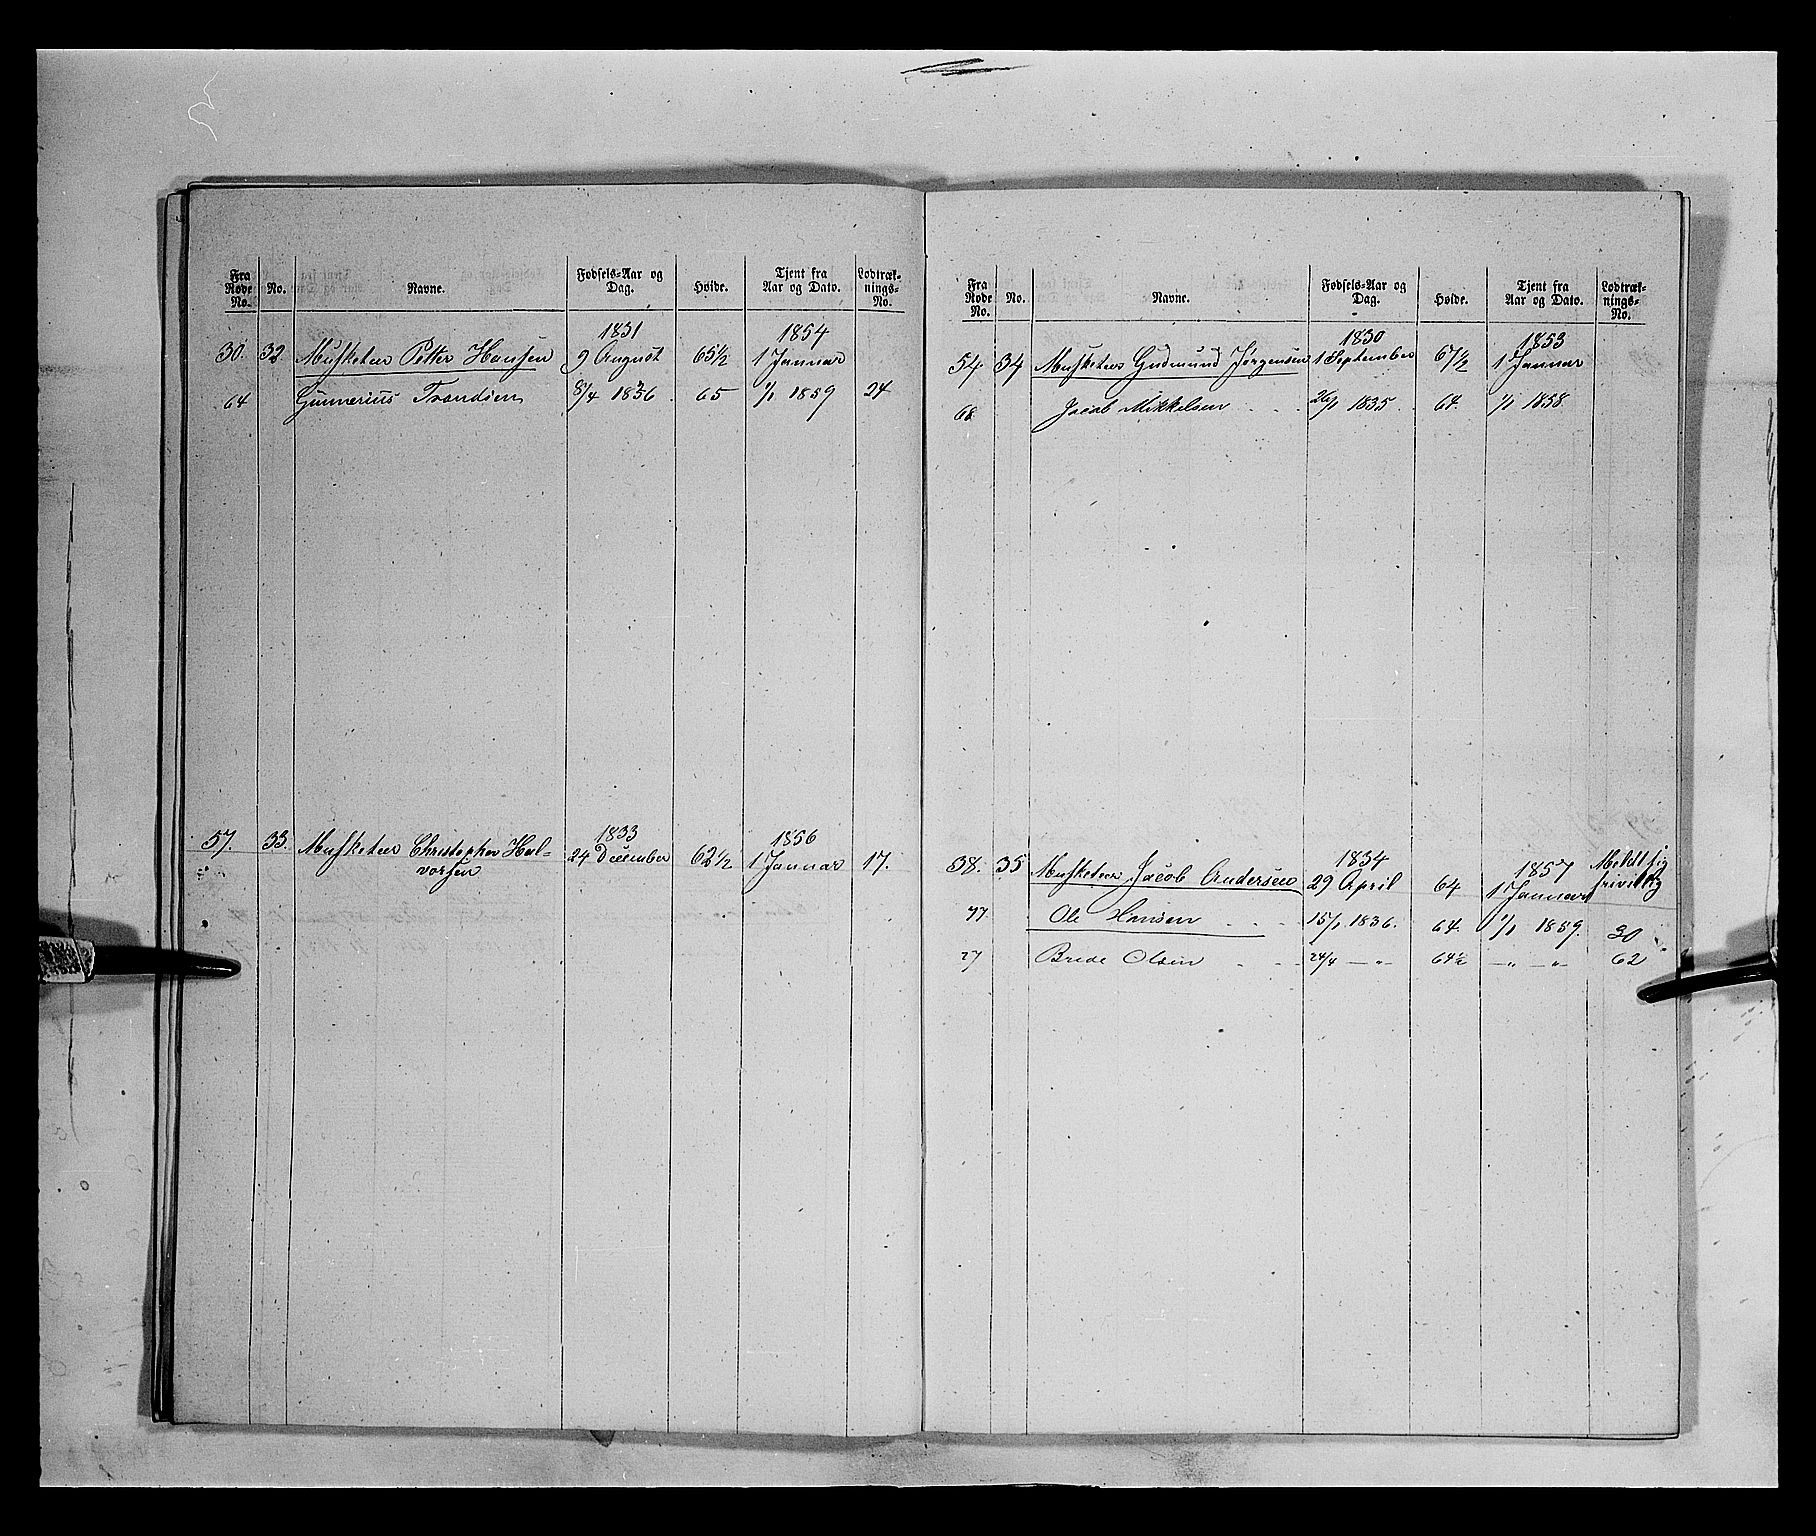 Fra Rode No. | No. | Navne. | Fødsels-Aar og Dag. | Høide. | Tjent fra Aar og Dato. | Lodtræk-nings-No.
1831 | 1854
30. | 32. | Musketeer Petter Hansen | 9 August | 65½ | 1 Januar
64 | Gunnerius Trondsen | 8/4 1836 | 65 | 1/1 1859 | 24
1833 | 1856
57. | 33. | Musketeer Christopher Hal- | 24 December | 62½ | 1 Januar | 17.
vorsen
Fra Rode No. | No. | Navne. | Fødsels-Aar og Dag. | Høide. | Tjent fra Aar og Dato. | Lodtræk-nings-No.
1830 | 1853
54. | 34 | Musketeer Gudmund Jørgensen | 1 September | 67½ | 1 Januar
68 | Jacob Mikkelsen | 26/1 1835 | 64. | 1/1 1858.
1834 | 1857 | Meldt sig
38. | 35 | Musketeer Jacob Andersen | 29 April | 64 | 1 Januar | frivillig
77 | Ole Hansen | 15/1 1836. | 64. | 1/1 1859. | 30
27 | Brede Olsen | 24/4 — „ — | 64½ | — „ — „ — | 62